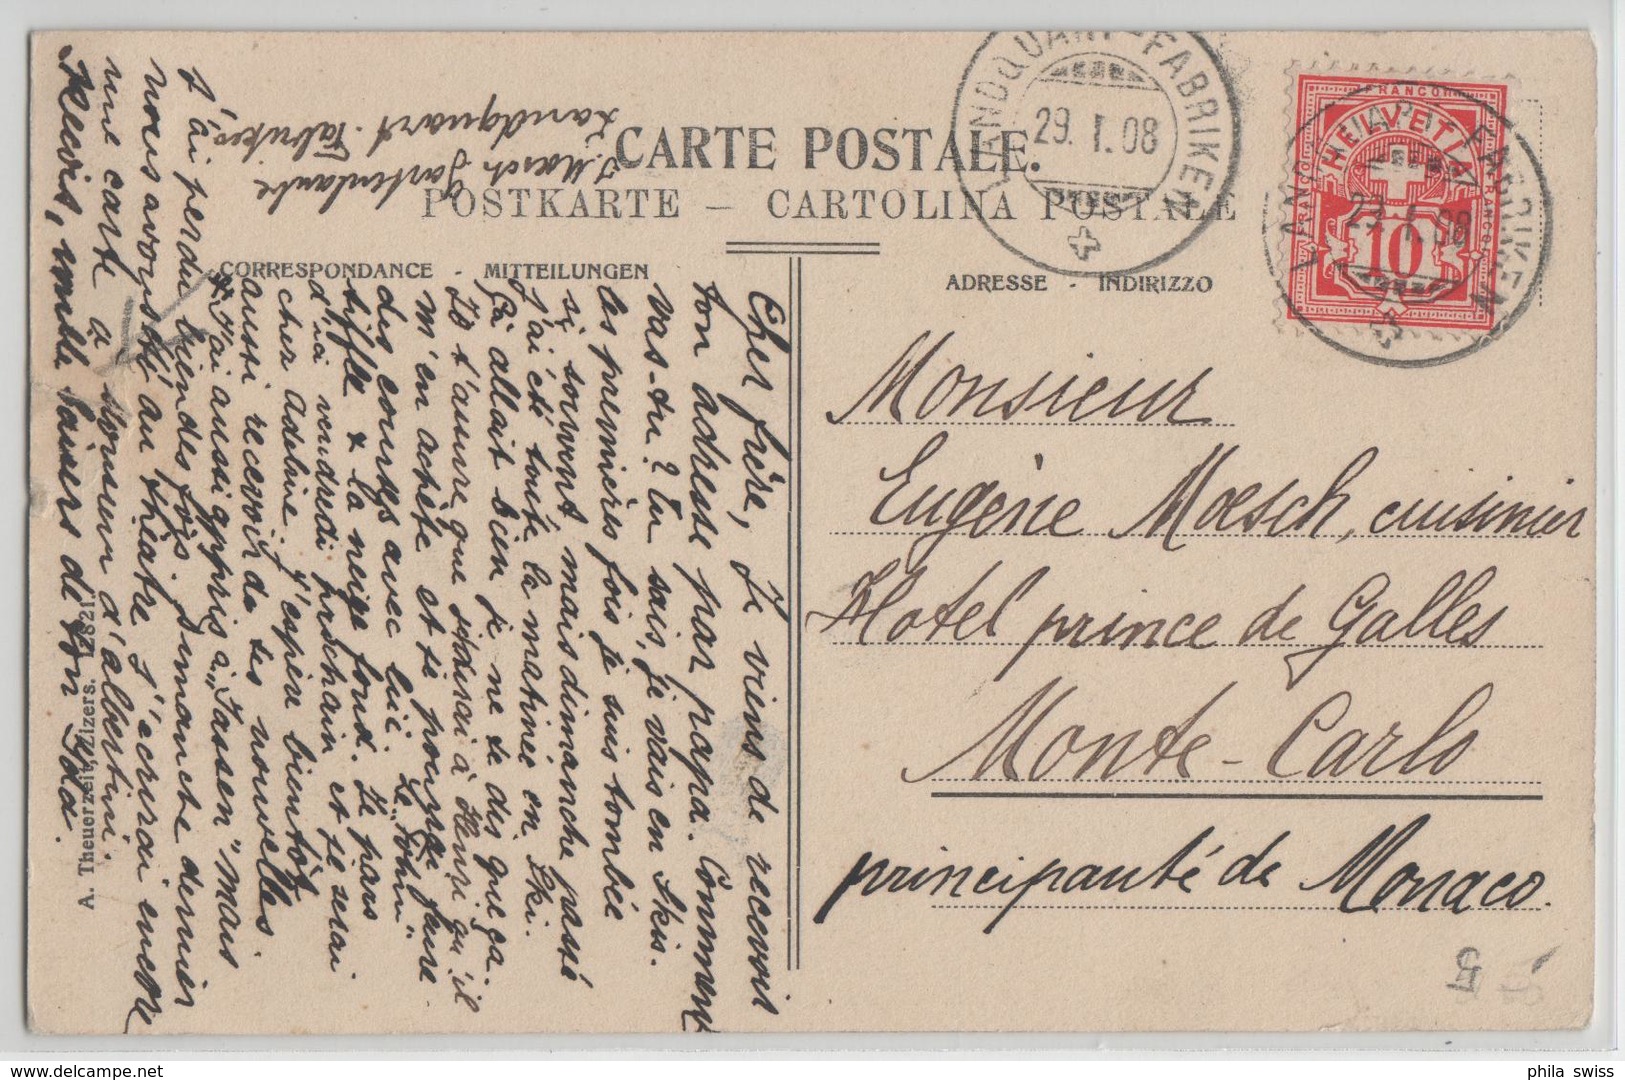 CARTE POSTALE.
POSTKARTE – CARTOLINA POSTALE
CORRESPONDANCE - MITTEILUNGEN
ADRESSE - INDIRIZZO
LANDQUART-FABRIKEN
29. I. 08
LANDQUART-FABRIKEN
29. I. 08
FRANCO
HELVETIA
FRANCO
FRANCO
10
Monsieur
Eugène Moesch, cuisinier
Hotel prince de Galles
Monte-Carlo
principauté de Monaco.
Cher frère, Je viens de recevoir
ton adresse par papa. Comment
vas-tu? Tu sais, je vais en Skis.
les premières fois je suis tombée
si souvent mais dimanche passé
j'ai été toute la matinée en Ski.
Çà allait bien je ne te dis que ça.
m'en achète et te pourrai faire
des courses avec lui. Le "Föhn"
siffle & la neige fond. Je pars
d'ici vendredi prochain et je serai
chez Adeline. J'espère bientôt
aussi recevoir de tes nouvelles.
J'ai aussi appris à "Jassen" mais
j'ai perdu bien des fois. Dimanche dernier
nous avons été au théâtre. J'écrirai encore
une carte à Monsieur d'Albertini.
Reçois, mille baisers de ton Ida.
I. Moesch Gartenlaube
Landquart-Fabriken
A. Theuerzeit, Zizers. 12821.
5
phila swiss